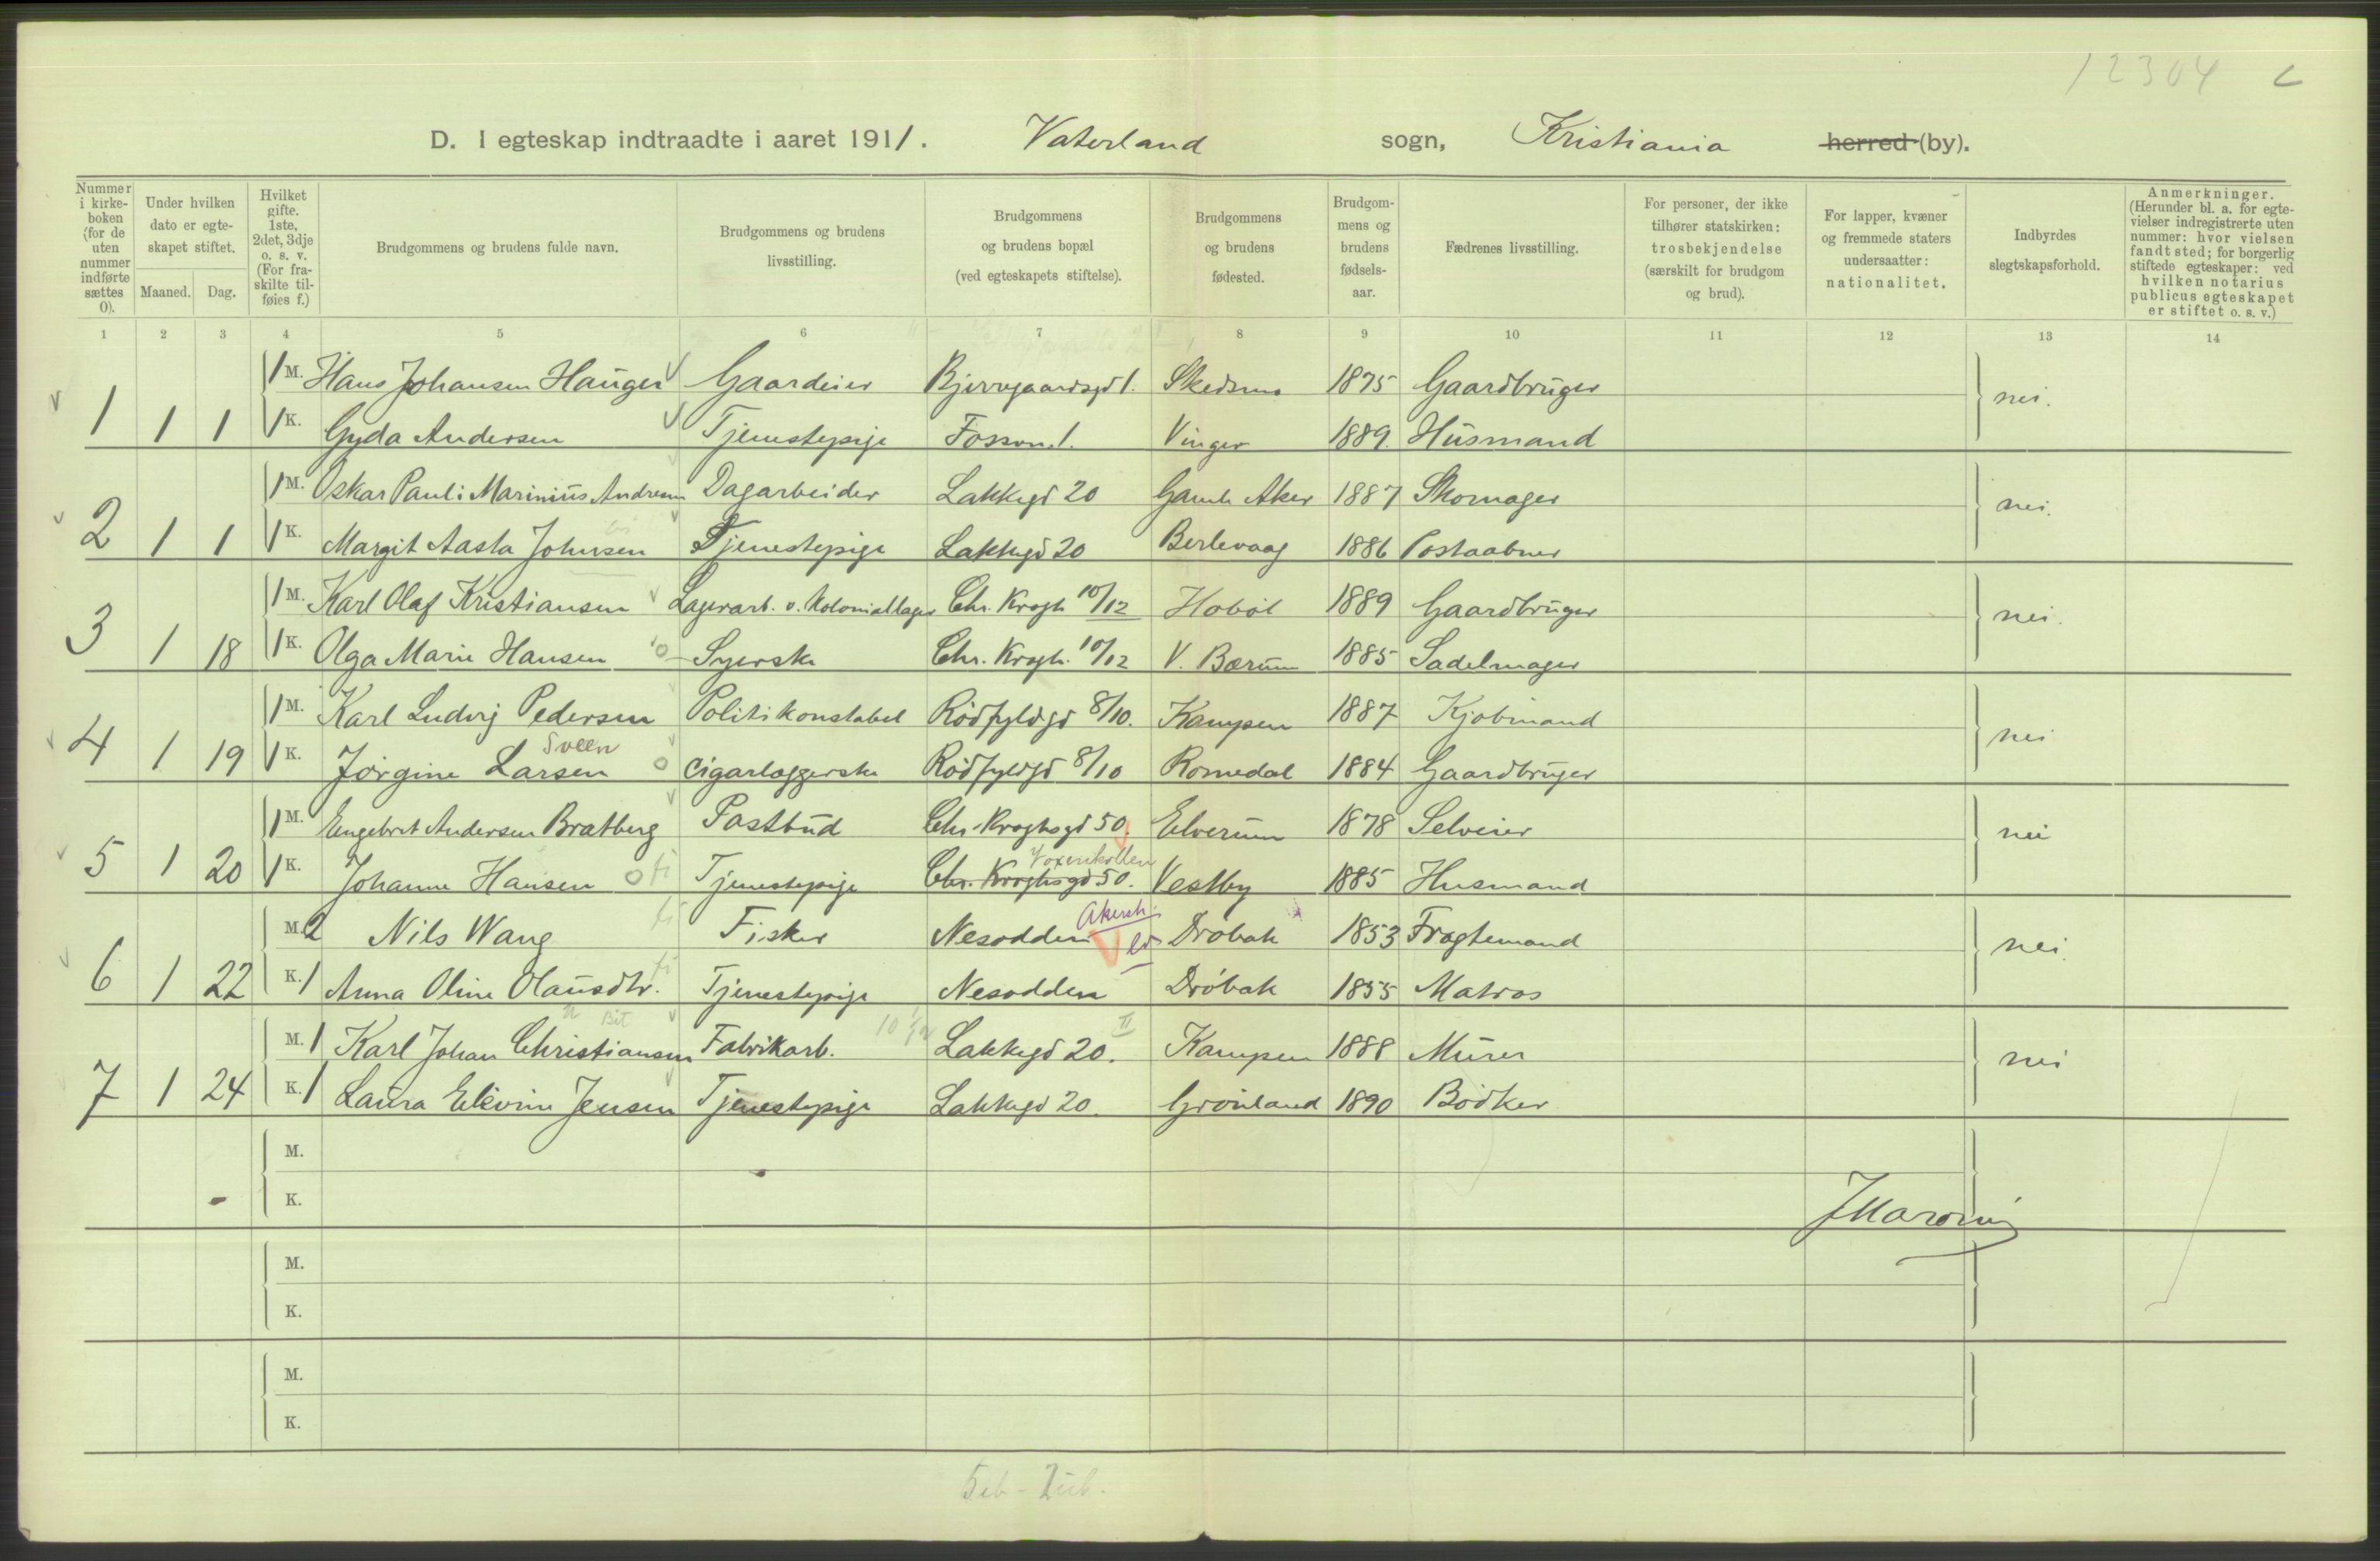 12304
D. I egteskap indtraadte i aaret 1911. Vaterland sogn, Kristiania herred (by).
Nummer i kirkeboken (for de uten nummer indførte sættes 0).
Under hvilken dato er egteskapet stiftet.
Maaned. Dag.
Hvilket gifte. 1ste, 2det, 3dje o. s. v. (For fraskilte tilføies f.)
Brudgommens og brudens fulde navn.
Brudgommens og brudens livsstilling.
Brudgommens og brudens bopæl (ved egteskapets stiftelse).
Brudgommens og brudens fødested.
Brudgommens og brudens fødselsaar.
Fædrenes livsstilling.
For personer, der ikke tilhører statskirken: trosbekjendelse (særskilt for brudgom og brud).
For lapper, kvæner og fremmede staters undersaatter: nationalitet.
Indbyrdes slegtskapsforhold.
Anmerkninger. (Herunder bl. a. for egtevielser indregistrerte uten nummer: hvor vielsen fandt sted; for borgerlig stiftede egteskaper: ved hvilken notarius publicus egteskapet er stiftet o. s. v.)
1 2 3 4 5 6 7 8 9 10 11 12 13 14
1 M. Hans Johansen Hauger Gaardeier 1. Skedsmo 1875 Gaardbruger nei.
1 1 1 1 K. Gyda Andersen Tjenestepige Fossvn. 1. Vinger 1889. Husmand
1 M. Oskar Pauli Marinius Andresen Dagarbeider Lakkegd 20 Gamle Aker 1887 Skomager nei.
2 1 1 1 K. Margit Aasta Johnsen Tjenestepige Lakkegd 20 Berlevaag 1886 Postaabner
1 M. Karl Olaf Kristiansen Lagerarb. v. Koloniallager Chr. Krogh 10/12 Hobøl 1889 Gaardbruger nei.
3 1 18 1 K. Olga Marie Hansen Syerske Chr. Krogh. 10/12 V. Bærum 1885 Sadelmager
1 M. Karl Ludvig Pedersen Politikonstabel Rødfyldgd 8/10. Kampen 1887 Kjøbmand nei
Sveen
4 1 19 1 K. Jørgine Larsen Cigarlæggerske Rødfyldgd 8/10 Romedal 1884 Gaardbruger
1 M. Engebret Andersen Bratberg Postbud Chr. Kroghsgd 50. Elverum 1878 Selveier nei
Voxenkollen
5 1 20 1 K. Johanne Hansen Tjenestepige Chr. Kroghsgd 50. Vestby 1885 Husmand
Akersh.
M. 2 Nils Wang Fisker Nesodden Drøbak 1853 Fragtemand nei.
6 1 22 K. 1 Anna Oline Olausdtr. Tjenestepige Nesodden Drøbak 1855 Matros
M. 1 Karl Johan Christiansen Fabrikarb. Lakkegd 20. Kampen 1888 Murer nei
7 1 24 K. 1 Laura Elevine Jensen Tjenestepige Lakkegd 20. Grønland 1890 Bødker
M.
K.
M.
K.
M.
K.